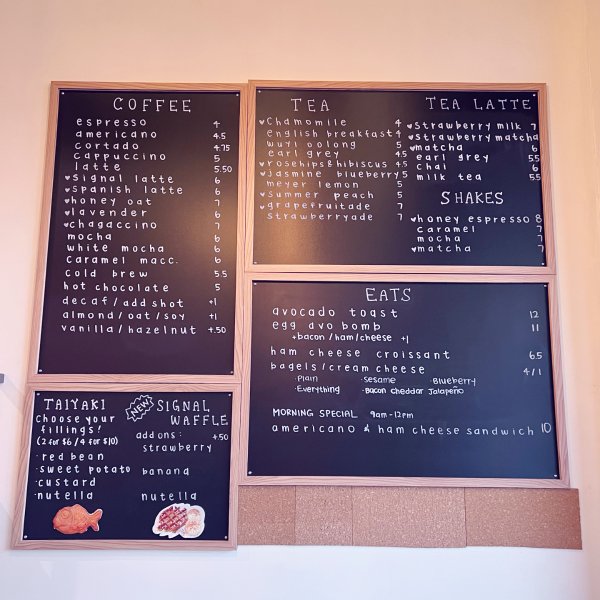 COFFEE
espresso 4
americano 4.5
cortado 4.75
cappuccino 5
latte 5.50
♥signal latte 6
♥spanish latte 6
♥honey oat 7
♥lavender 6
♥chagaccino 7
mocha 6
white mocha 6
caramel macc. 6
cold brew 5.5
hot chocolate 5
decaf/add shot +1
almond/oat/soy +1
vanilla/hazelnut +.50
TEA
♥Chamomile 4
english breakfast 4
wuyi oolong 5
earl grey 4.5
♥rosehips & hibiscus 4.5
♥jasmine blueberry 5
meyer lemon 5
♥summer peach 5
♥grapefruitade 7
strawberryade 7
TEA LATTE
♥strawberry milk 7
♥strawberry matcha
♥matcha 6
earl grey 5.5
chai 6
milk tea 5.5
SHAKES
♥honey espresso 8
caramel 7
mocha 7
♥matcha 7
EATS
avocado toast 12
egg avo bomb 11
+bacon/ham/cheese +1
ham cheese croissant 6.5
bagels/cream cheese 4/1
·Plain ·sesame ·Blueberry
·Everything ·Bacon cheddar Jalapeño
MORNING SPECIAL 9am-12pm
americano & ham cheese sandwich 10
TAIYAKI
choose your
fillings!
(2 for $6/4 for $10)
·red bean
·sweet potato
·custard
·nutella
NEW SIGNAL
WAFFLE
add ons: +.50
strawberry
banana
nutella